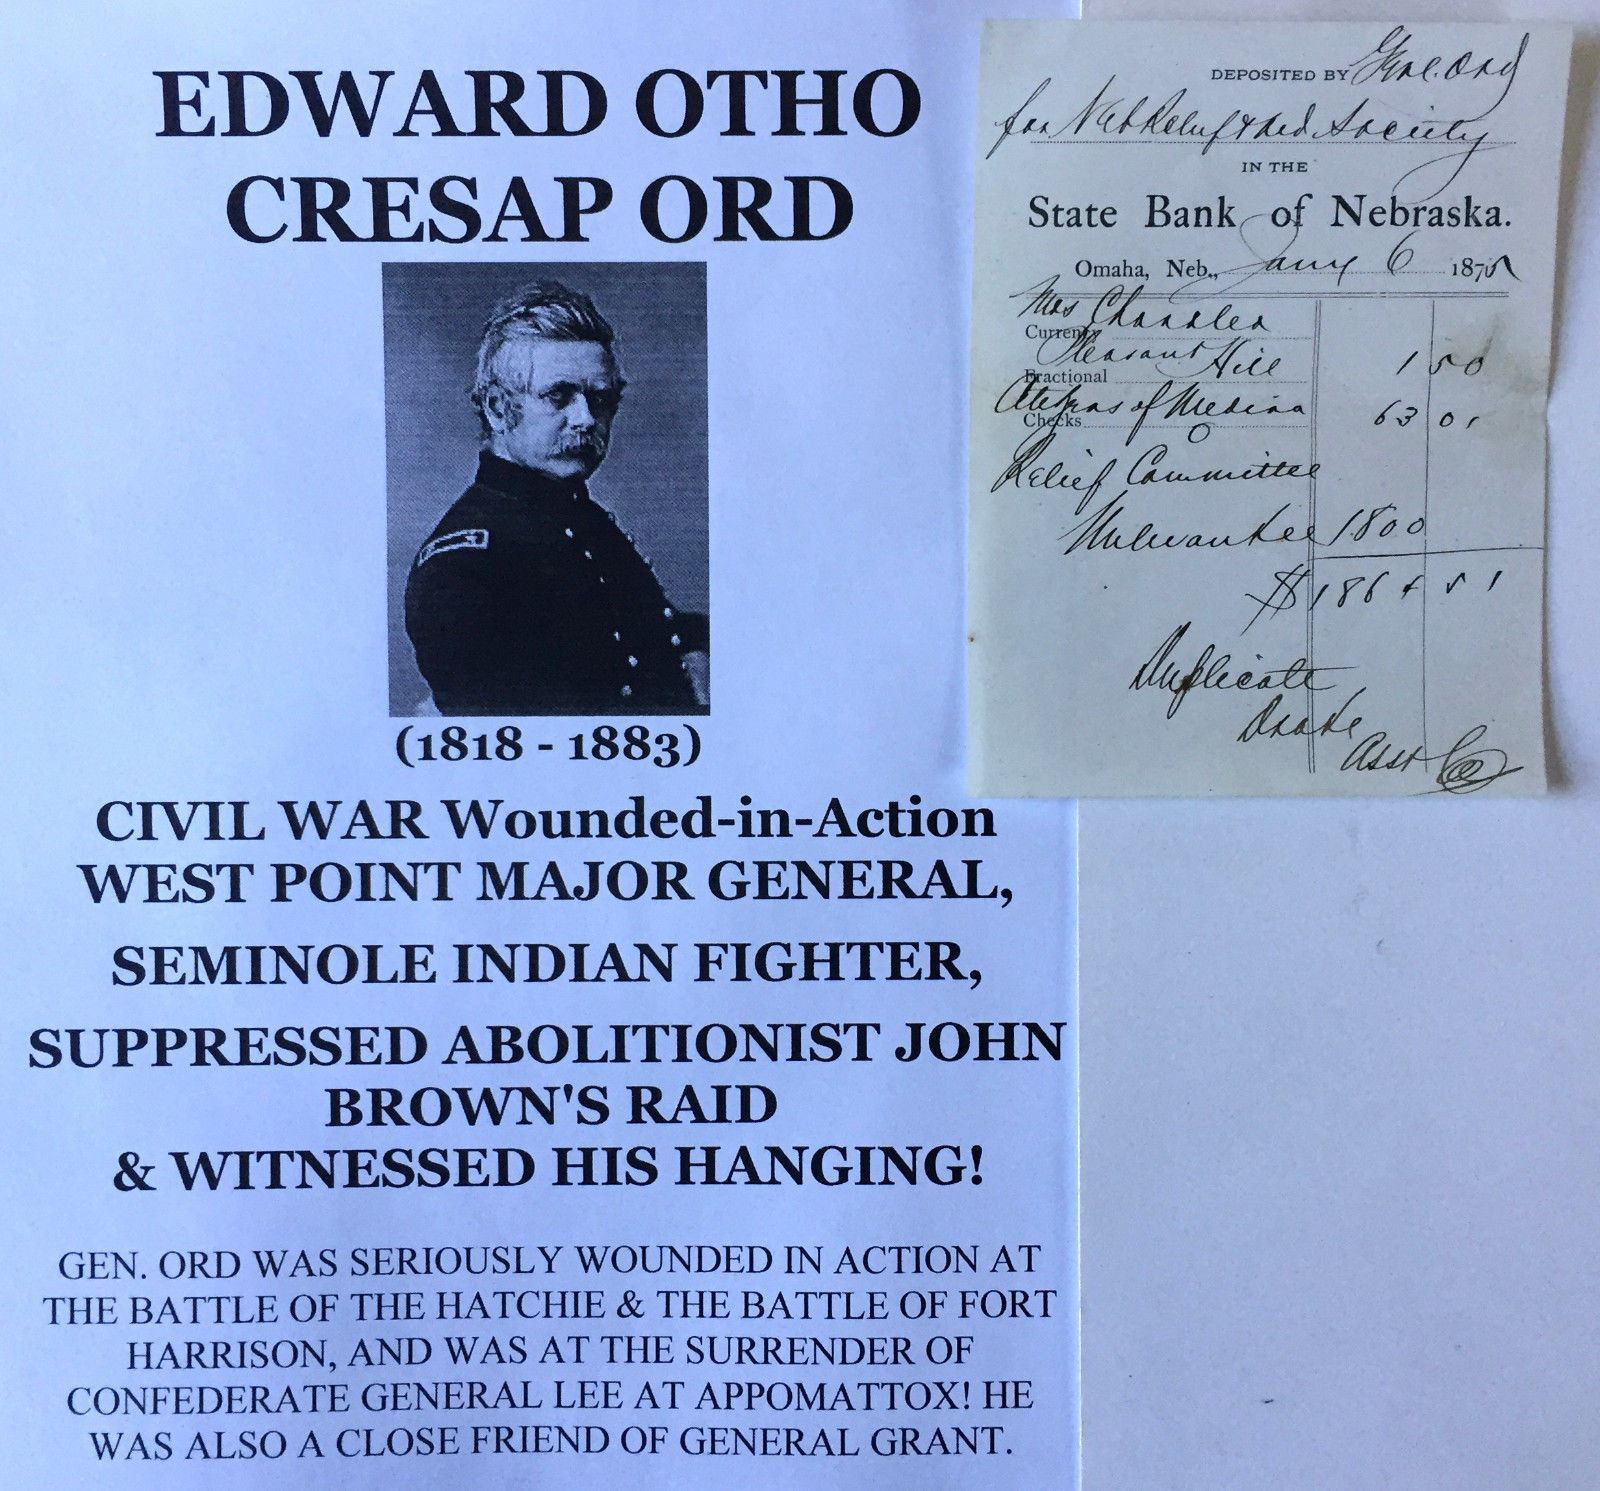 EDWARD OTHO
CRESAP ORD
(1818 - 1883)
CIVIL WAR Wounded-in-Action
WEST POINT MAJOR GENERAL,
SEMINOLE INDIAN FIGHTER,
SUPPRESSED ABOLITIONIST JOHN
BROWN'S RAID
& WITNESSED HIS HANGING!
GEN. ORD WAS SERIOUSLY WOUNDED IN ACTION AT
THE BATTLE OF THE HATCHIE & THE BATTLE OF FORT
HARRISON, AND WAS AT THE SURRENDER OF
CONFEDERATE GENERAL LEE AT APPOMATTOX! HE
WAS ALSO A CLOSE FRIEND OF GENERAL GRANT.
DEPOSITED BY Genl. Ord
for Neb Relief & Aid Society
IN THE
State Bank of Nebraska.
Omaha, Neb., Jany 6 1875
Mrs Chandler
Currency
Pleasant Hill 1 50
Fractional
Citizens of Medina 63 01
Checks
O
Relief Committee
Milwaukee 1800
$1864 51
Duplicate
Drake
Asst